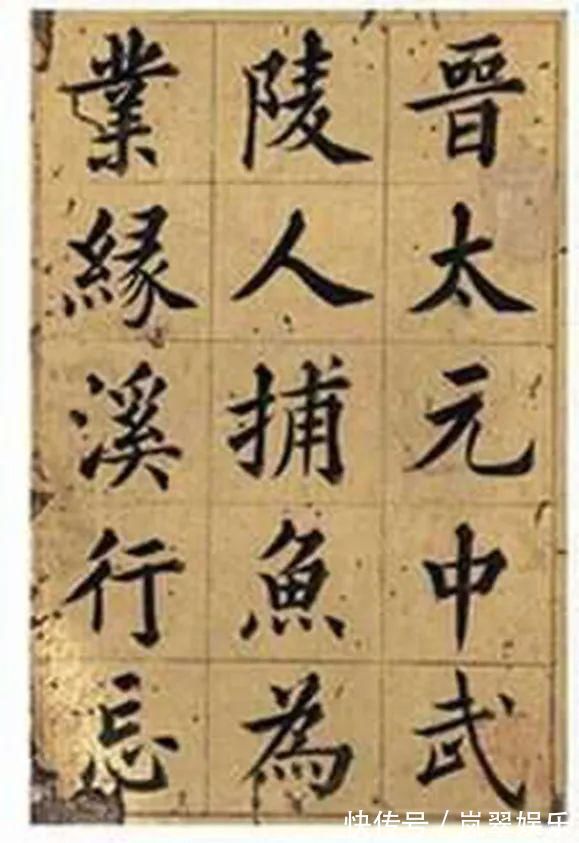 晋太元中武
陵人捕魚為
業縁溪行忘
快传号／岚翠娱乐